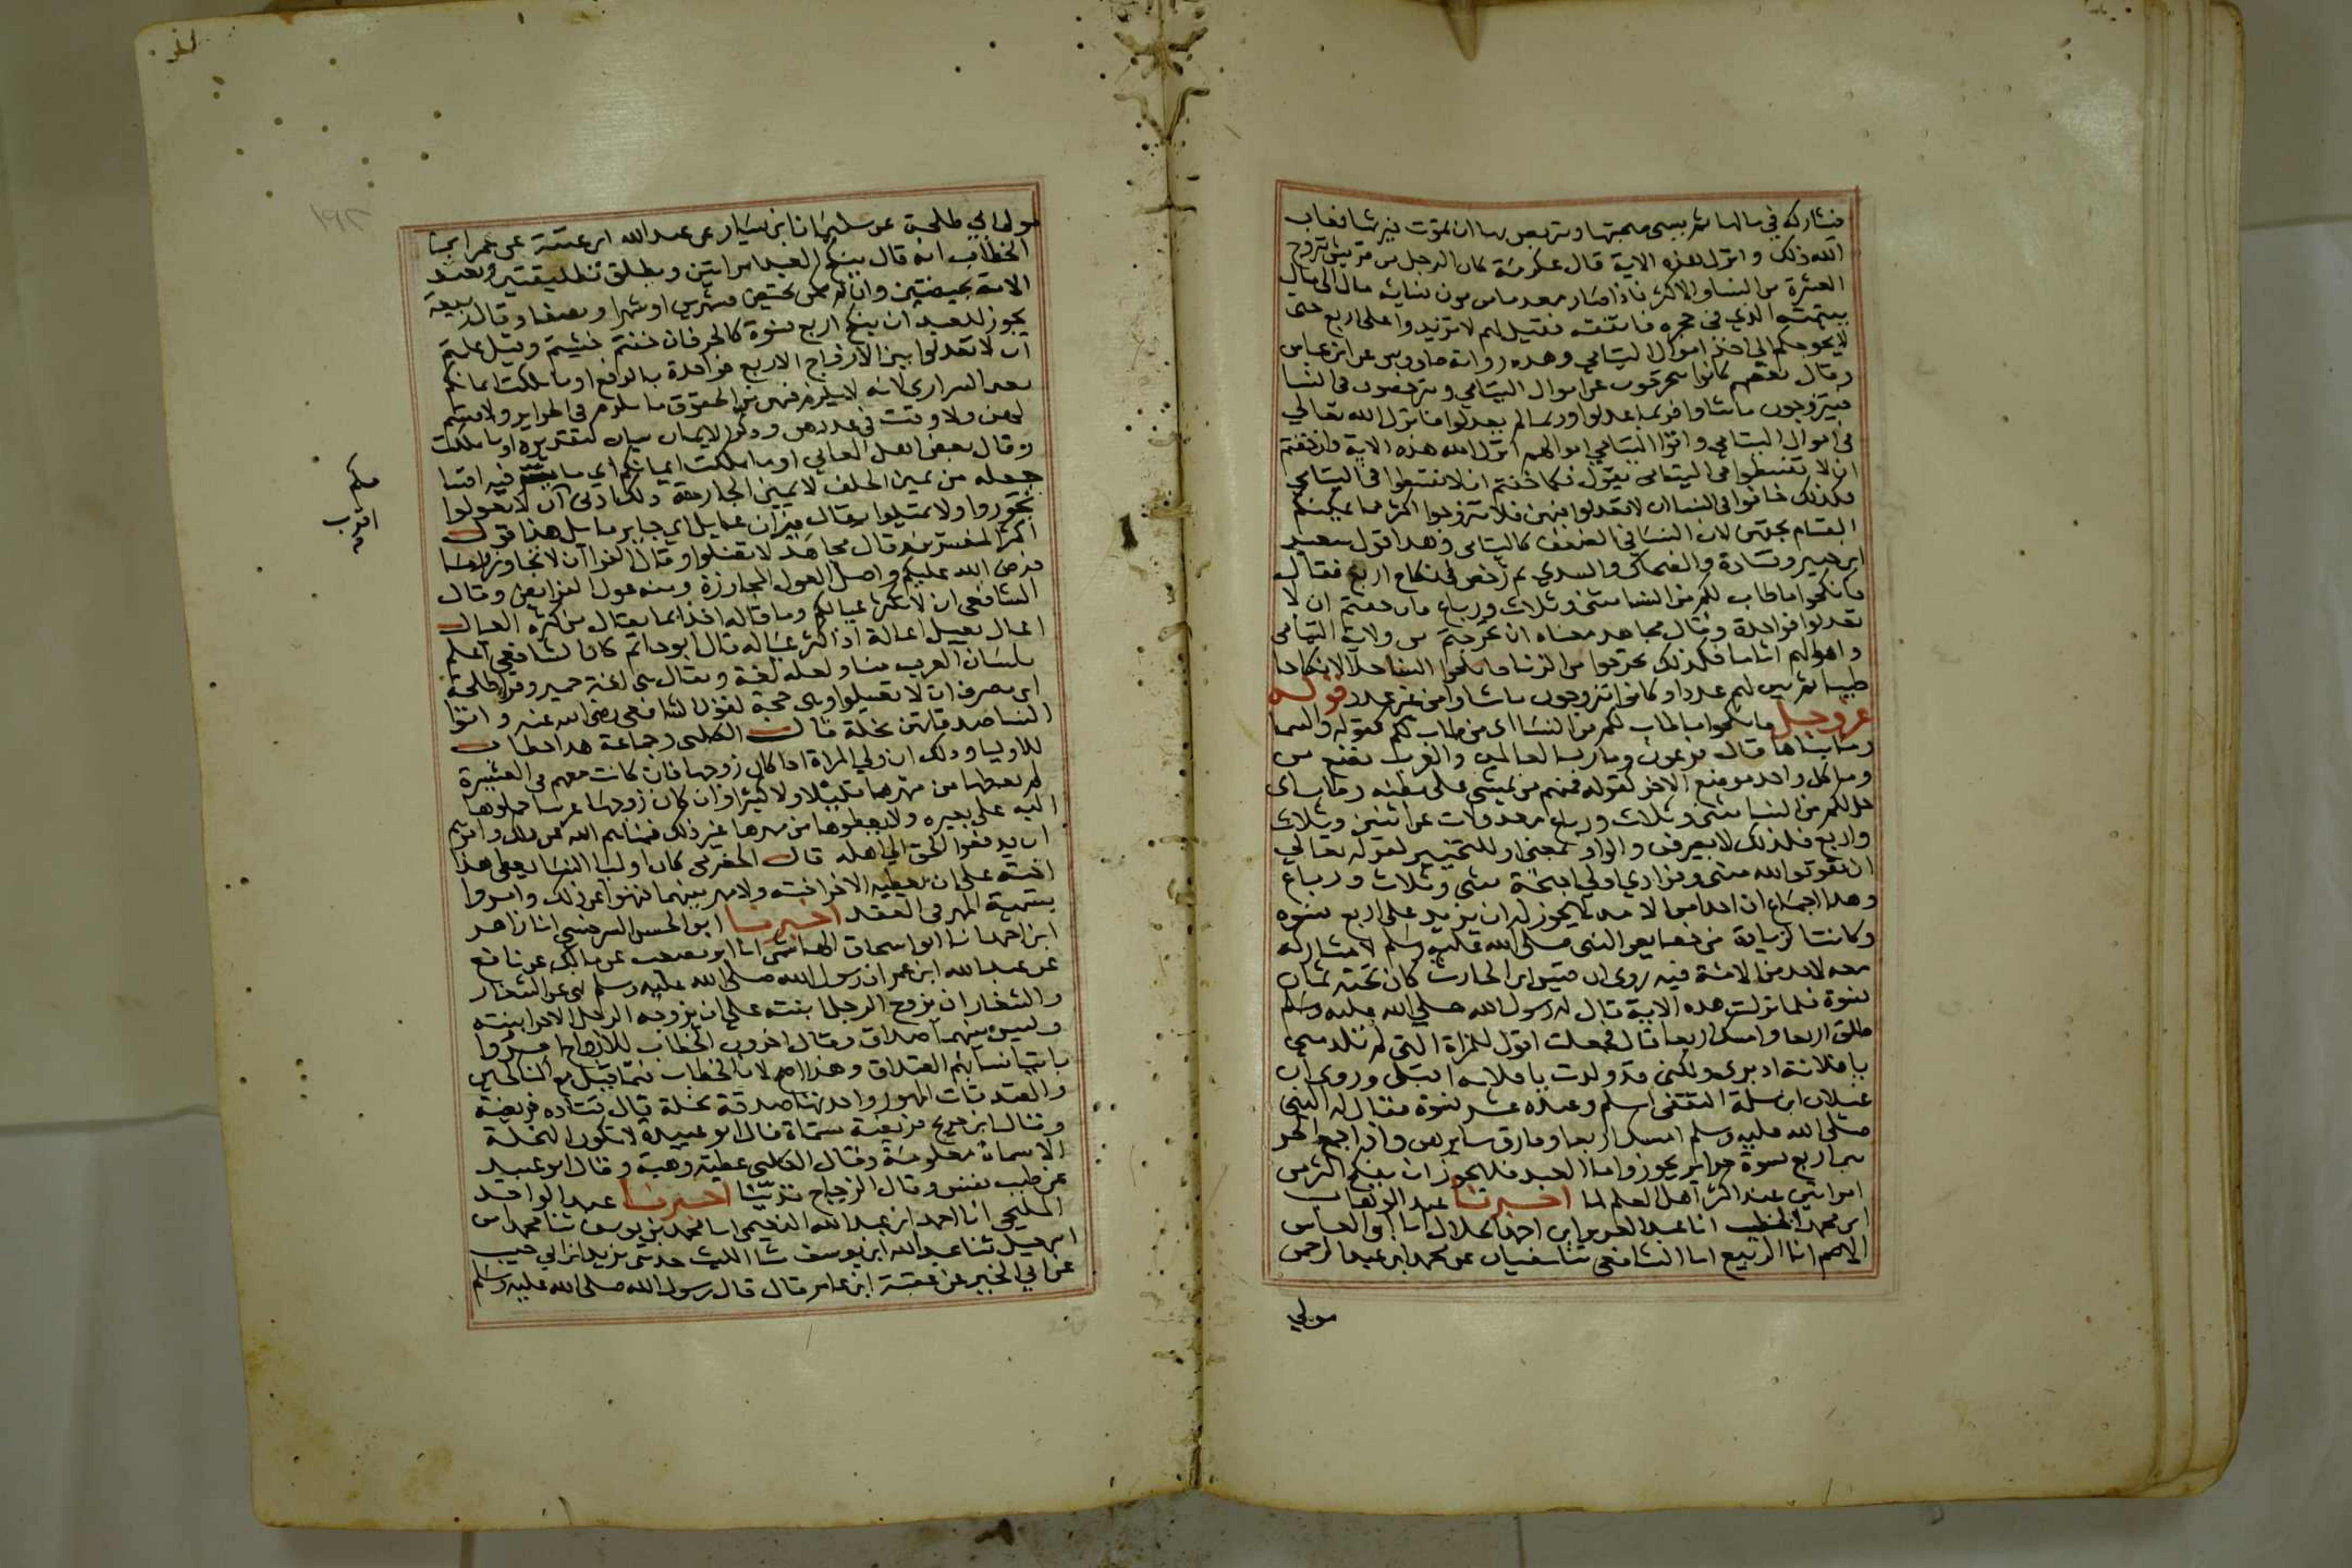 فيشاركه في مالها ثم يسي صحبتها ويتربص بها ان تموت فيرثها فعاب
الله ذلك وانزل هذه الاية قال عكرمة كان الرجل من قريش يتزوج
العشرة من النسا والاكثر فاذا صار معدما من مون نسايه مال الى مال
يتيمته الذي في حجره فانفقه فقيل لهم لا تزيدوا على اربع حتى
لا يحوجكم الى اخذ اموال اليتامي وهذه رواية طاووس عن ابن عباس
وقال بعضهم كانوا يتحرجون عن اموال اليتامي ويترخصون في النسا
فيتزوجون ما شاوا فربما عدلوا وربما لم يعدلوا فلما نزل الله تعالي
في اموال اليتامي واتوا اليتامي اموالهم انزل الله هذه الاية وان خفتم
ان لا تقسطوا في اليتامى يقول فكما خفتم ان لا تقسطوا في اليتامي
فكذلك خافوا في النسا ان لا تعدلوا فيهن فلا تتزوجوا اكثر مما يمكنكم
القيام بحقهن لان النسا في الضعف كاليتامى وهذا قول سعيد
ابن جبير وقتادة والضحاك والسدي ثم رخص في نكاح اربع فقال
فانكحوا ما طاب لكم من النسا مثنى وثلاث ورباع فان خفتم ان لا
تعدلوا فواحدة وقال مجاهد معناه ان تحرجتم من ولاية اليتامى
واموالهم ايمانا فكذلك تحرجوا من الزنا فانكحوا النسا حلالا نكاحا
طيبا ثم بين لهم عددا وكانوا يتزوجون ما شاوا من غير عدد قوله
عز وجل فانكحوا ما طاب لكم من النسا اى من طاب لكم كقوله والسما
وما بناها قال فرعون وما رب العالمين والعرب تضع من
وما كل واحد موضع الاخر كقوله فمنهم من يمشي على بطنه وطاب اى
حل لكم من النسا مثنى وثلاث ورباع معدولات عن اثنين وثلاث
واربع فلذلك لا يصرفن والواو بمعنى او للتخيير لقوله تعالي
ان تقوموا لله مثنى وفرادي اولي اجنحة مثنى وثلاث ورباع
وهذا اجماع ان احدا من الامة لا يجوز له ان يزيد على اربع نسوه
وكانت الزيادة من خصايص النبى صلى الله عليه وسلم لا مشاركة
معه لاحد من الامة فيه روى ان قيس ابن الحارث كان تحته ثمان
نسوة فلما نزلت هذه الاية قال له رسول الله صلي الله عليه وسلم
طلق اربعا وامسك اربعا قال فجعلت اقول للمراة التي لم تلد مني
يا فلانة ادبري والتى قد ولدت يا فلانه اقبلى وروى ان
غيلان ابن سلمة الثقفى اسلم وعنده عشر نسوة فقال له النبى
صلى الله عليه وسلم امسك اربعا وفارق سايرهن واذا جمع الحر
بين اربع نسوة حراير يجوز واما العبد فلا يجوز ان ينكح اكثر من
امراتين عند اكثر اهل العلم لما اخبرنا عبد الوهاب
ابن محمد الخطيب انا عبد العزيز ابن احمد الخلال انا ابو العباس
الاصم انا الربيع انا الشافعى ثنا سفيان عن محمد ابن عبد الرحمن
مولي
مولى ابي طلحة عن سليمان ابن يسار عن عبد الله ابن عتبة عن عمر ابن
الخطاب انه قال ينكح العبد امراتين ويطلق تطليقتين وتعتد
الامة بحيضتين وان لم تكن تحيض فشهرين او شهرا ونصفا وقال ربيعة
يجوز للعبد ان ينكح اربع نسوة كالحر فان خفتم خشيتم وقيل علمتم
ان لا تعدلوا بين الازواج الاربع فواحدة بالرفع او ما ملكت ايمانكم
يعني السراري لانه لا يلزم فيهن من الحقوق ما يلزم في الحراير ولا قسم
لهن ولا وقت في عددهن وذكر الايمان بيان تقديره او ما ملكت
وقال بعض اهل المعاني او ما ملكت ايمانكم اي ما ينفذ فيه اقسا
جعله من يمين الحلف لا يمين الجارحة ذلك ادنى ان لا تعولوا
تجوروا ولا تميلوا يقال ميزان عايل اي جاير مايل هذا قول
اكثر المفسرين وقال مجاهد لا تضلوا وقال الفرا ان لا تجاوزوا ما
فرض الله عليكم واصل العول المجاوزة ومنه عول الفرايض وقال
الشافعي ان لا تكثر عيالكم وما قاله احد انما يقال من كثرة العيال
اعال يعيل اعالة اذا كثر عياله قال ابو حاتم كان الشافعي اعلم
بلسان العرب منا ولعله لغة ويقال هي لغة حمير وقرا طلحة
ابن مصرف ان لا تعيلوا وهى حجة لقول الشافعي رضى الله عنه واتوا
النسا صدقاتهن نحلة قال الكلبى وجماعة هذا خطاب
للاوليا وذلك ان ولي المراة اذا كان زوجها فان كانت معهم في العشيرة
لم يعطها من مهرها قليلا ولا كثيرا وان كان زوجها غريبا حملوها
اليه على بعيره ولا يعطوها من مهرها غير ذلك فنهاهم الله عن ذلك وامرهم
ان يدفعوا الحق الي اهله قال الحضرمي كان اوليا النسا يعطى هذا
اخته على ان يعطيه الاخر اخته ولا مهر بينهما فنهوا عن ذلك وامروا
بتسمية المهر في العقد اخبرنا ابو الحسن السرخسي انا زاهر
ابن احمد انا ابو اسحاق الهاشمى انا ابو مصعب عن مالك عن نافع
عن عبد الله ابن عمر ان رسول الله صلى الله عليه وسلم نهى عن الشغار
والشغار ان يزوج الرجل ابنته على ان يزوجه الرجل الاخر ابنته
وليس بينهما صداق وقال اخرون الخطاب للازواج امروا
بايتا نسايهم الصداق وهذا اصح لان الخطاب فيما قبل مع الناكحين
والصدقات المهور واحدتها صدقة نحلة قال قتاده فريضة
وقال ابن جريج فريضة مسماة قال ابو عبيدة لا تكون النحلة
الا مسماة معلومة وقال الكلبى عطية وهبة وقال ابو عبيد
عن طيب نفس وقال الزجاج تدينا اخبرنا عبد الواحد
المليحي انا احمد ابن عبد الله النعيمي انا محمد بن يوسف ثنا محمد ابن
اسمعيل ثنا عبد الله ابن يوسف ثنا الليث حدثني يزيد ابن ابي حبيب
عن ابي الخير عن عقبة ابن عامر قال قال رسول الله صلى الله عليه وسلم